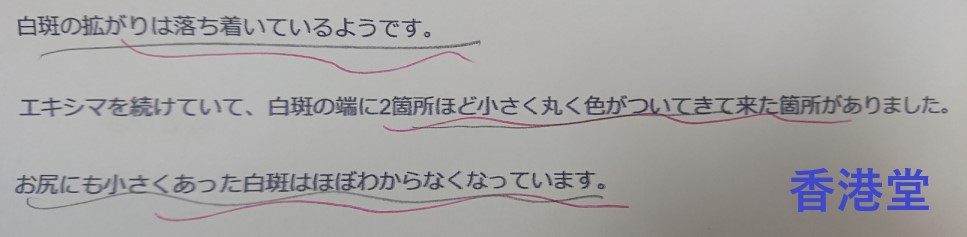 白斑の拡がりは落ち着いているようです。
エキシマを続けていて、白斑の端に2箇所ほど小さく丸く色がついてきて来た箇所がありました。
お尻にも小さくあった白斑はほぼわからなくなっています。
香港堂